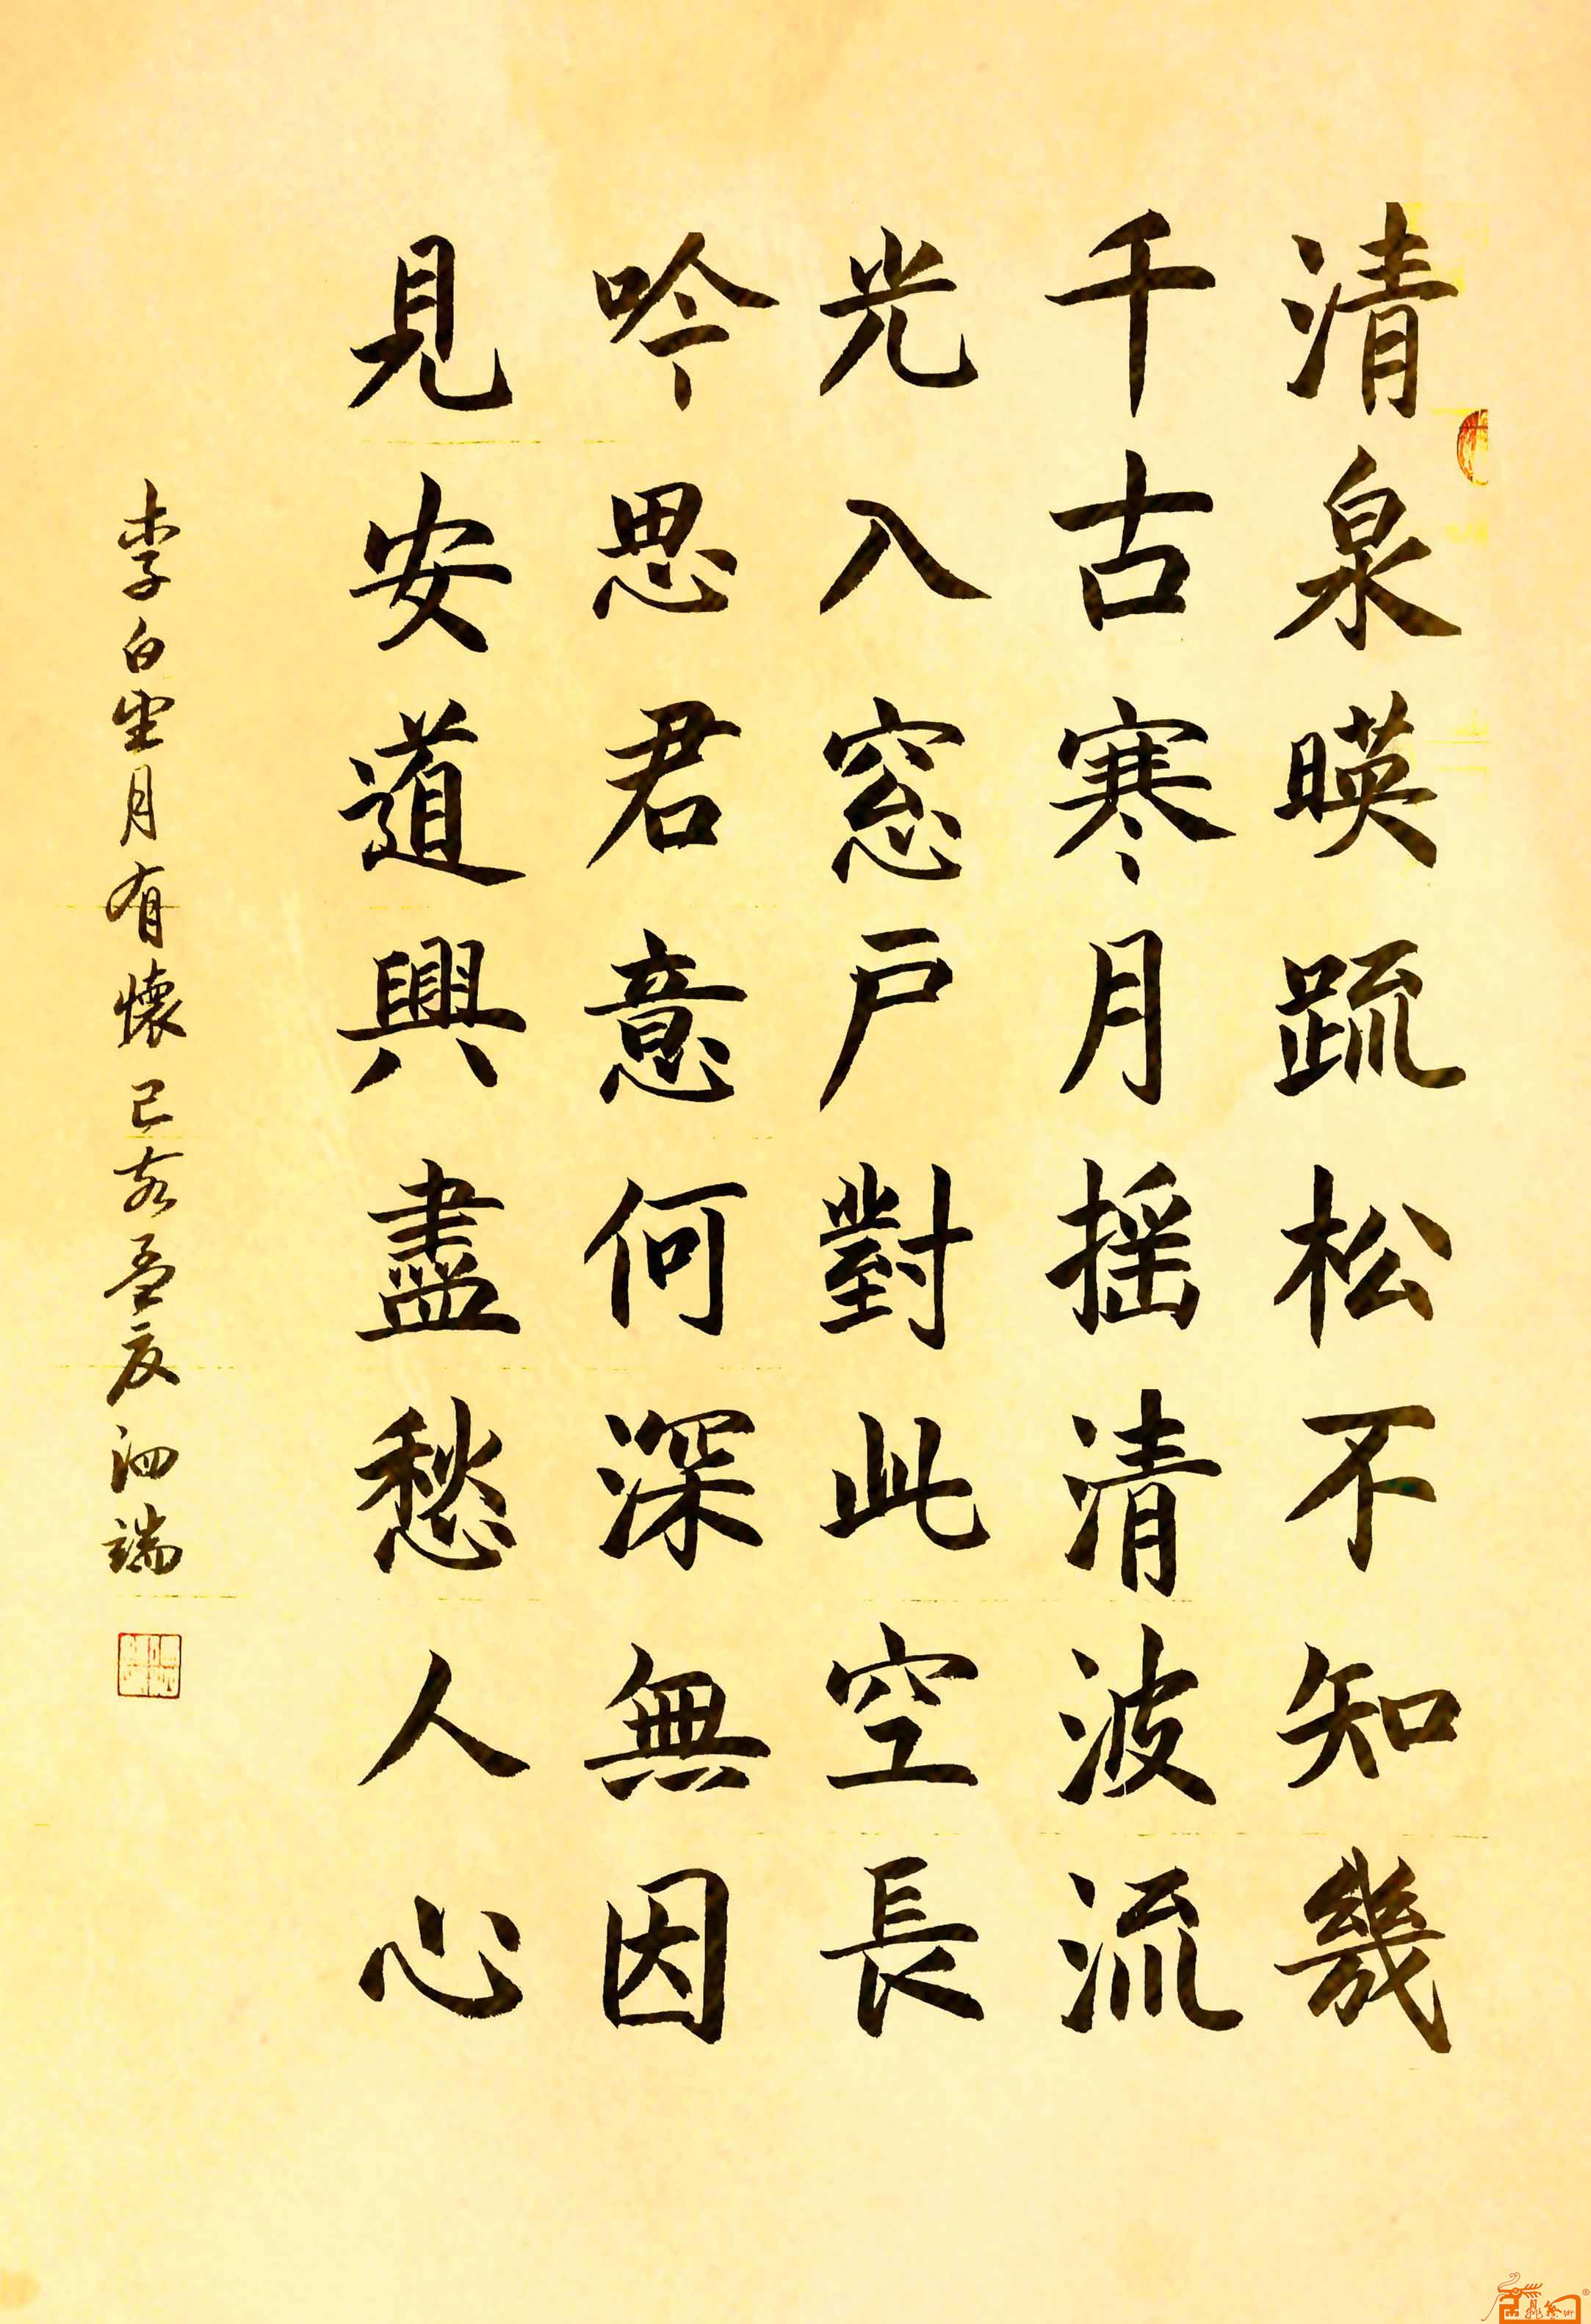 清泉暎䟽松不知幾
千古寒月摇清波流
光入窓戶對此空長
吟思君意何深無因
見安道興盡愁人心
李白望月有懷己亥孟夏泗端